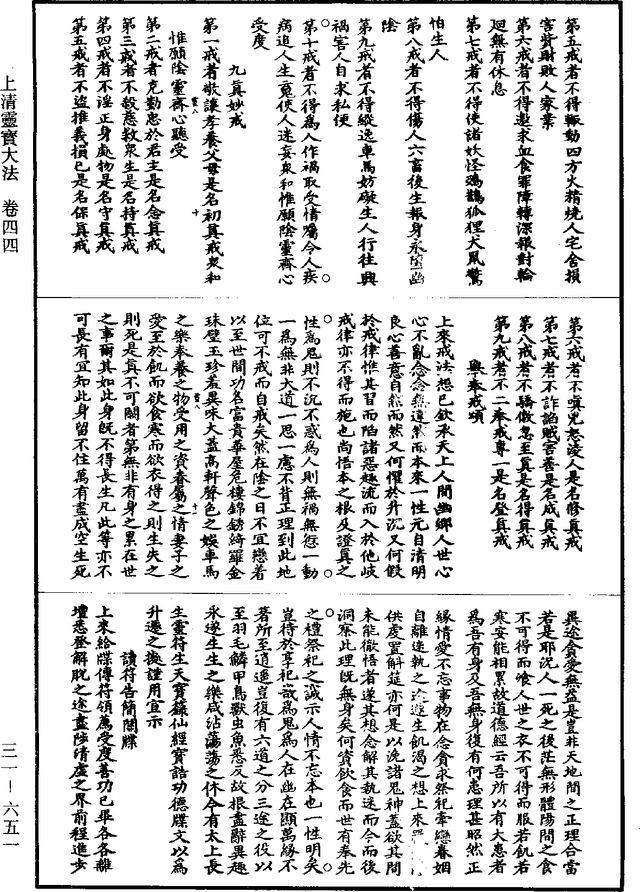 上清靈寶大法　卷四四
三一－六五一
第五戒者不得輙動四方火精燒人宅舍損
害貲財敗人家業
第六戒者不得邀求血食罪障轉深報對輪
迴無有休息
第七戒者不得使諸妖怪鴟鵲狐狸犬鼠驚
怕生人
第八戒者不得傷人六畜後生報身永墮幽
陰
第九戒者不得縱逸車馬妨礙生人行往興
禍害人自求私便
第十戒者不得爲人作禍取受情囑令人疾
病追人生魂使人迷妄衆和惟願陰靈齊心
受度
九眞妙戒
第一戒者敬讓孝養父母是名初眞戒衆和
惟願陰靈齋心聽受
第二戒者克勤忠於君主是名念眞戒
第三戒者不殺慈救衆生是名持眞戒
第四戒者不淫正身處物是名守眞戒
第五戒者不盜推義損己是名保眞戒
第六戒者不嗔兇怒凌人是名修眞戒
第七戒者不詐諂賊害善是名成眞戒
第八戒者不驕傲忽至眞是名得眞戒
第九戒者不二奉戒專一是名登眞戒
與奉戒頌
上來戒法想已欽承天上人間幽鄉人世心
心不亂念念無違然而本來一性元自清明
良心善意自然而然又何懼於升沉又何假
於戒律惟其習而陷諸惡趣流而入於他岐
戒律亦不得而施也尚悟本之根及證眞之
性爲鬼則不沉不惑爲人則無禍無愆一動
一爲無非大道一思一慮不背正理到此地
位可不戒而自戒矣然在陰之日不宜戀着
以至世間功名富貴華屋危樓錦綉綺羅金
珠璧玉珍羞異味大蓋高軒聲色之娛車馬
之樂奉養之物受用之資眷屬之情妻子之
愛至於飢而欲食寒而欲衣得之則生失之
則死是眞不可闕者第無非有身之累在世
之事爾其如此身旣不得長生凡此等亦不
可長有宜知此身留不住萬有盡成空生死
異途貪愛無益是豈非天地間之正理合當
若是耶況人一死之後茫無形體陽間之食
不可得而喰人世之衣不可得而服若飢若
寒安能相累故道德經云吾所以有大患者
爲吾有身及吾無身復有何患理甚昭然正
緣情愛不忘事物在念貪求祭祀牽戀眷姻
供處置斛筵亦何是以浼諸鬼神蓋欲其問
未能徹悟者遂其想念解其執迷而今而後
洞察此理旣無身矣何資飲食而世有奉先
之禮祭祀之誠示人情不忘本也一性明矣
豈待於享祀哉爲鬼爲人在幽在顯萬緣不
著所至逍遥豈復有六道之分三途之役以
至羽毛鱗甲鳥獸虫魚悉反故根盡辭異趣
永遂生生之樂咸沾蕩蕩之休今有太上長
生靈符生天寶籙仙經寶誥功德牒文以爲
升遷之擁謹用宣示
讀符告簡關牒
上來給牒傳符領篤受度善功已畢各各離
壇悉登解脫之途盡陟清虛之界前程進步